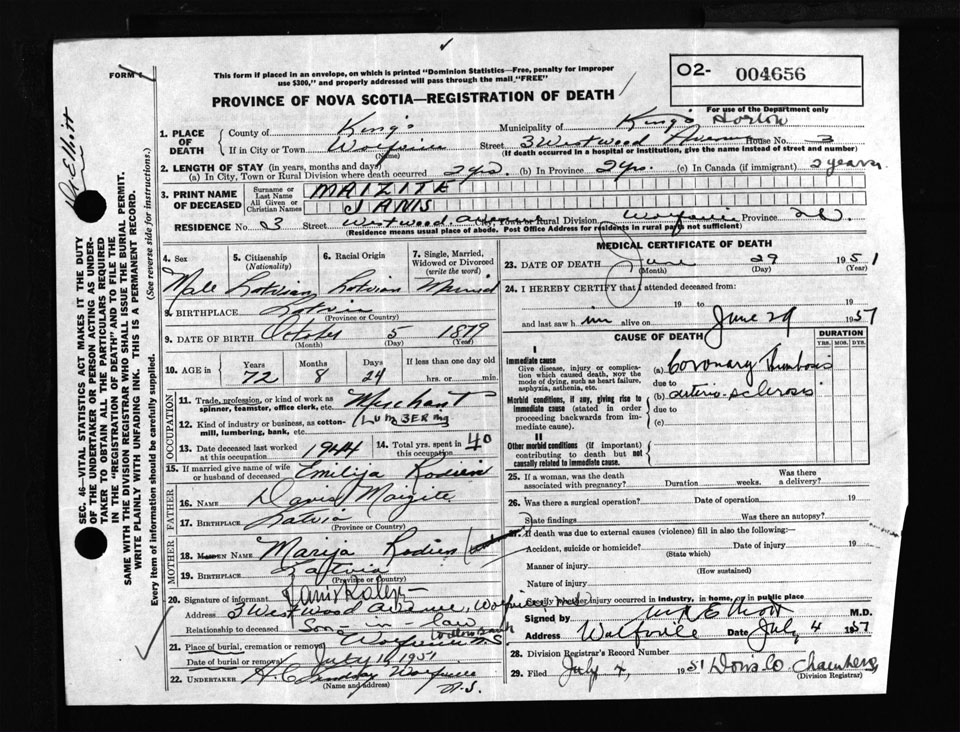 FORM 4
This form if placed in an envelope, on which is printed "Dominion Statistics—Free, penalty for improper
use $300," and properly addressed will pass through the mail "FREE"
PROVINCE OF NOVA SCOTIA—REGISTRATION OF DEATH
02- 004656
For use of the Department only
Dr Elliott
SEC. 46—VITAL STATISTICS ACT MAKES IT THE DUTY
OF THE UNDERTAKER OR PERSON ACTING AS UNDER-
TAKER TO OBTAIN ALL THE PARTICULARS REQUIRED
IN THE "REGISTRATION OF DEATH" AND TO FILE THE
SAME WITH THE DIVISION REGISTRAR WHO SHALL ISSUE THE BURIAL PERMIT.
WRITE PLAINLY WITH UNFADING INK. THIS IS A PERMANENT RECORD.
Every item of information should be carefully supplied. (See reverse side for instructions.)
1. PLACE OF DEATH County of King's Municipality of King's Horton
If in City or Town Wolfville (Name) Street 3 Westwood Avenue House No. 3
(If death occurred in a hospital or institution, give the name instead of street and number)
2. LENGTH OF STAY (in years, months and days)
(a) In City, Town or Rural Division where death occurred 2 yrs. (b) In Province 2 yrs. (c) In Canada (if immigrant) 2 years
3. PRINT NAME OF DECEASED Surname or Last Name MAIZITE
All Given or Christian Names JANIS
RESIDENCE No. 3 Street Westwood City, Town or Rural Division Wolfville Province N.S.
(Residence means usual place of abode. Post Office Address for residents in rural parts not sufficient)
4. Sex 5. Citizenship (Nationality) 6. Racial Origin 7. Single, Married, Widowed or Divorced (write the word)
Male Latvian Latvian Married
8. BIRTHPLACE Latvia
(Province or Country)
9. DATE OF BIRTH October 5 1879
(Month) (Day) (Year)
10. AGE in Years Months Days If less than one day old
72 8 24 hrs. or min.
OCCUPATION
11. Trade, profession, or kind of work as spinner, teamster, office clerk, etc. Merchant
12. Kind of industry or business, as cotton-mill, lumbering, bank, etc. (LUMBERing
13. Date deceased last worked at this occupation 1944 14. Total yrs. spent in this occupation 40
15. If married give name of wife or husband of deceased Emilija Rodien
FATHER
16. NAME David Maizite
17. BIRTHPLACE Latvia
(Province or Country)
MOTHER
18. MAIDEN NAME Marija Rodien
19. BIRTHPLACE Latvia
(Province or Country)
20. Signature of informant
Address 3 Westwood Avenue, Wolfville N.S.
Relationship to deceased Son-in-law
21. Place of burial, cremation or removal Wolfville N.S.
Date of burial or removal July 1, 1951
22. UNDERTAKER H. C. Lindsay Wolfville
(Name and address) N.S.
MEDICAL CERTIFICATE OF DEATH
23. DATE OF DEATH June 29 1951
(Month) (Day) (Year)
24. I HEREBY CERTIFY that I attended deceased from:
19 to 19
and last saw him alive on June 29 1951
CAUSE OF DEATH
DURATION
YRS. MOS. DYS.
I
Immediate cause
Give disease, injury or complication which caused death, not the mode of dying, such as heart failure, asphyxia, asthenia, etc.
(a) Coronary Thrombosis
due to
Morbid conditions, if any, giving rise to immediate cause (stated in order proceeding backwards from immediate cause).
(b) arterio-sclerosis
due to
(c)
II
Other morbid conditions (if important) contributing to death but not causally related to immediate cause.
25. If a woman, was the death associated with pregnancy? Duration weeks. Was there a delivery?
26. Was there a surgical operation? Date of operation 19
State findings Was there an autopsy?
27. If death was due to external causes (violence) fill in also the following:—
Accident, suicide or homicide? Date of injury 19
(State which)
Manner of injury
(How sustained)
Nature of injury
Specify whether injury occurred in industry, in home, or in public place
Signed by Elliott M.D.
Address Wolfville Date July 4 1951
28. Division Registrar's Record Number
29. Filed July 4, 1951 Chambers
(Division Registrar)